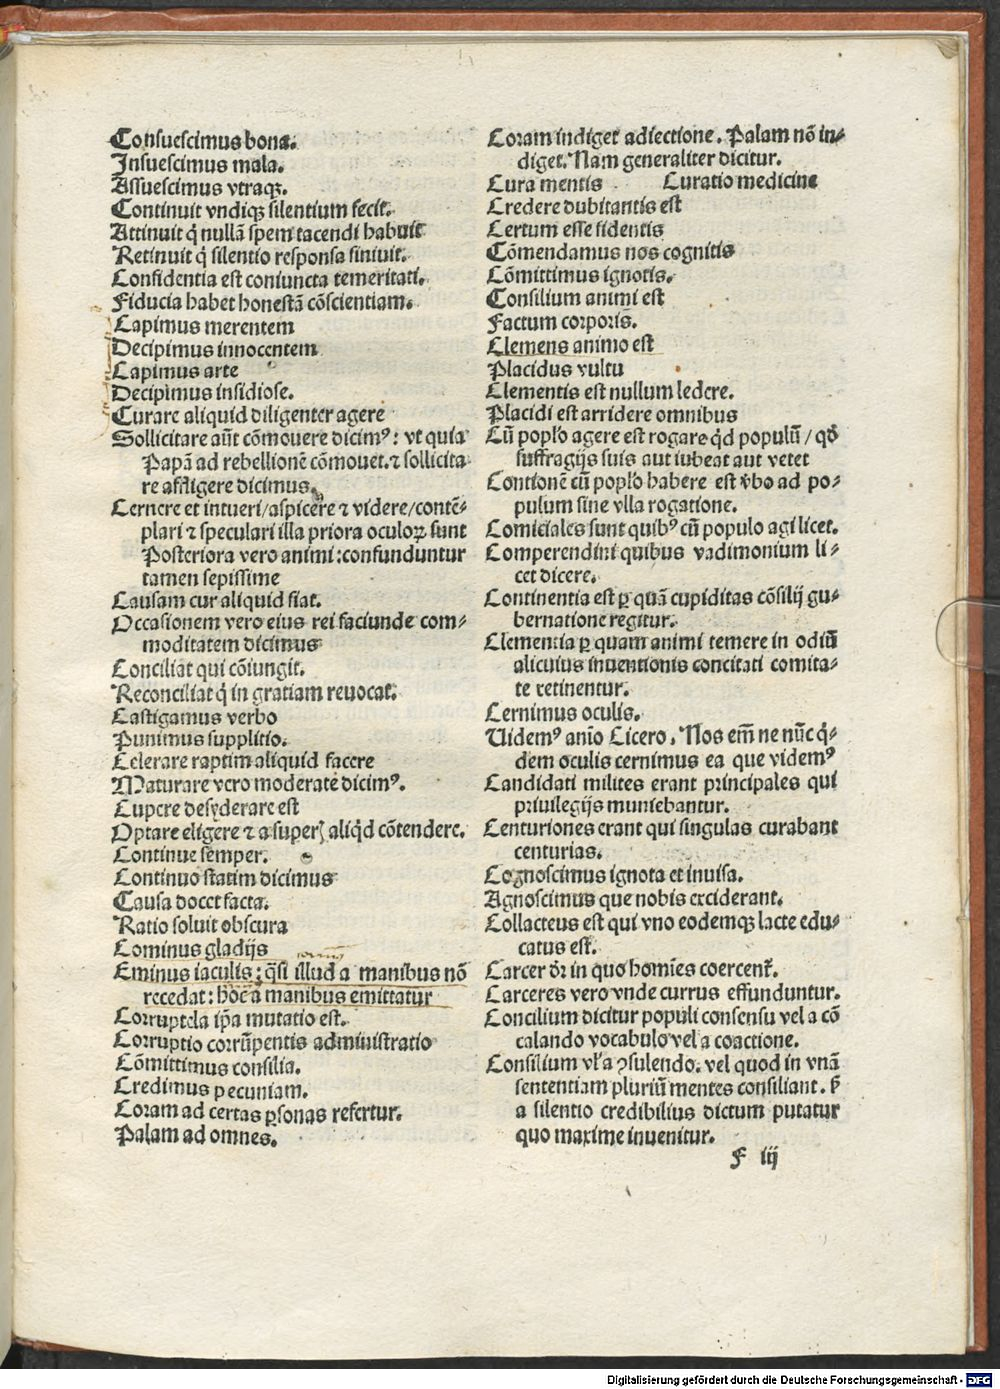 Consuescimus bona.
Insuescimus mala.
Assuescimus vtraqꝫ.
Continuit vndiqꝫ silentium fecit.
Attinuit q̇ nullā spem tacendi habuit
Retinuit q̇ silentio responsa siniuit.
Confidentia est coniuncta temeritati.
Fiducia habet honestā cōscientiam.
Capimus merentem
Decipimus innocentem
Capimus arte
Decipimus insidiose.
Curare aliquid diligenter agere
Sollicitare aūt cōmouere dicimꝰ: vt quia
Papā ad rebellionē cōmouet. ⁊ sollicita
re affligere dicimus.
Cernere et intueri/aspicere ⁊ videre/contē⸗
plari ⁊ speculari illa priora oculoꝝ sunt
Posteriora vero animi: confunduntur
tamen sepissime
Causam cur aliquid fiat.
Occasionem vero eius rei faciunde com⸗
moditatem dicimus
Conciliat qui cōiungit.
Reconciliat q̇ in gratiam reuocat.
Castigamus verbo
Punimus supplitio.
Celerare raptim aliquid facere
Maturare vero moderate dicimꝰ.
Cupere desyderare est
Optare eligere ⁊ a superꝭ aliq̇d cōtendere.
Continue semper.
Continuo statim dicimus
Causa docet facta.
Ratio soluit obscura
Cominus gladijs
Eminus iaculis: q̄si illud a manibus nō
recedat: hoc ā manibus emittatur
Corruptela ip̄a mutatio est.
Corruptio corrūpentis administratio
Cōmittimus consilia.
Credimus pecuniam.
Coram ad certas ꝑsonas refertur.
Palam ad omnes.
Coram indiget adiectione. Palam nō in⸗
diget. Nam generaliter dicitur.
Cura mentis Curatio medicine
Credere dubitantis est
Certum esse fidentis
Cōmendamus nos cognitis
Cōmittimus ignotis.
Consilium animi est
Factum corporis.
Clemens animo est
Placidus vultu
Clementis est nullum ledere.
Placidi est arridere omnibus
Cū poplo agere est rogare q̇d populū/ qđ
suffragijs suis aut iubeat aut vetet
Contionē cū poplo habere est v̄bo ad po⸗
pulum sine vlla rogatione.
Comiciales sunt quibꝰ cū populo agi licet.
Comperendini quibus vadimonium li⸗
cet dicere.
Continentia est ꝑ quā cupiditas cōsilij gu⸗
bernatione regitur.
Clementia ꝑ quam animi temere in odiū
alicuius inuentionis concitati comita⸗
te retinentur.
Cernimus oculis.
Uidemꝰ anīo Cicero. Nos em̄ ne nūc q̇⸗
dem oculis cernimus ea que videmꝰ
Candidati milites erant principales qui
priuilegijs muniebantur.
Centuriones erant qui singulas curabant
centurias.
Cognoscimus ignota et inuisa.
Agnoscimus que nobis exciderant.
Collacteus est qui vno eodemqꝫ lacte edu⸗
catus est.
Carcer dr̄ in quo homīes coercent̄.
Carceres vero vnde currus effunduntur.
Concilium dicitur populi consensu vel a cō
calando vocabulo vel a coactione.
Consilium vl̓ a ꝯsulendo. vel quod in vnā
sententiam pluriū mentes consiliant.
a silentio credibilius dictum putatur
quo maxime inuenitur.
F iij
Digitalisierung gefördert durch die Deutsche Forschungsgemeinschaft - DFG